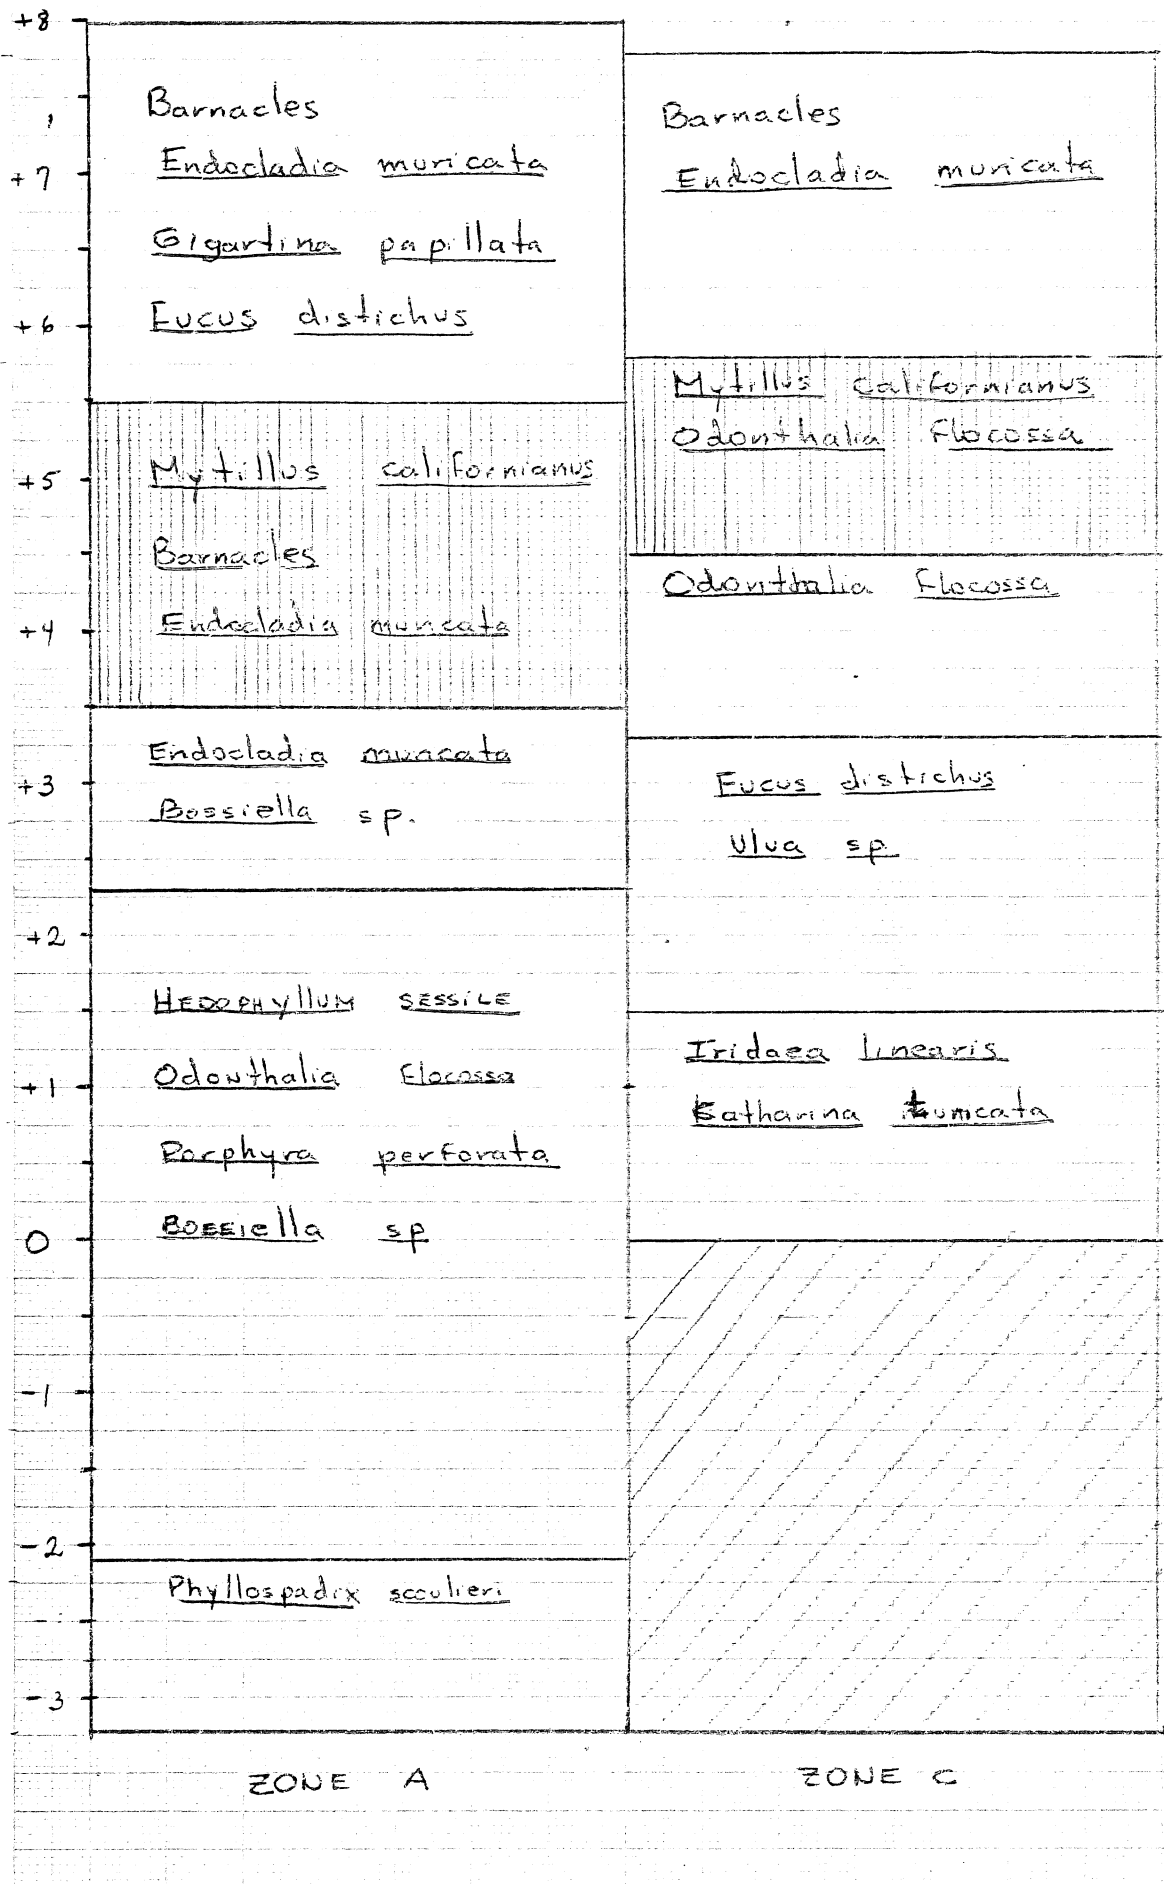 +8
Barnacles
+7
Endocladia muricata
Gigartina papillata
+6
Fucus distichus
Mytillus californianus
+5
Barnacles
+4
Endocladia muricata
Endocladia muricata
+3
Bossiella sp.
+2
HEDOPHYllUM SESSILE
+1
Odonthalia flocossa
Porphyra perforata
0
Bossiella sp
-1
-2
Phyllospadix scoulieri
-3
ZONE A
Barnacles
Endocladia muricata
Mytillus californianus
Odonthalia Flocossa
Odonthalia Flocossa
Fucus distichus
Ulva sp.
Iridaea linearis
Katharina tunicata
ZONE C